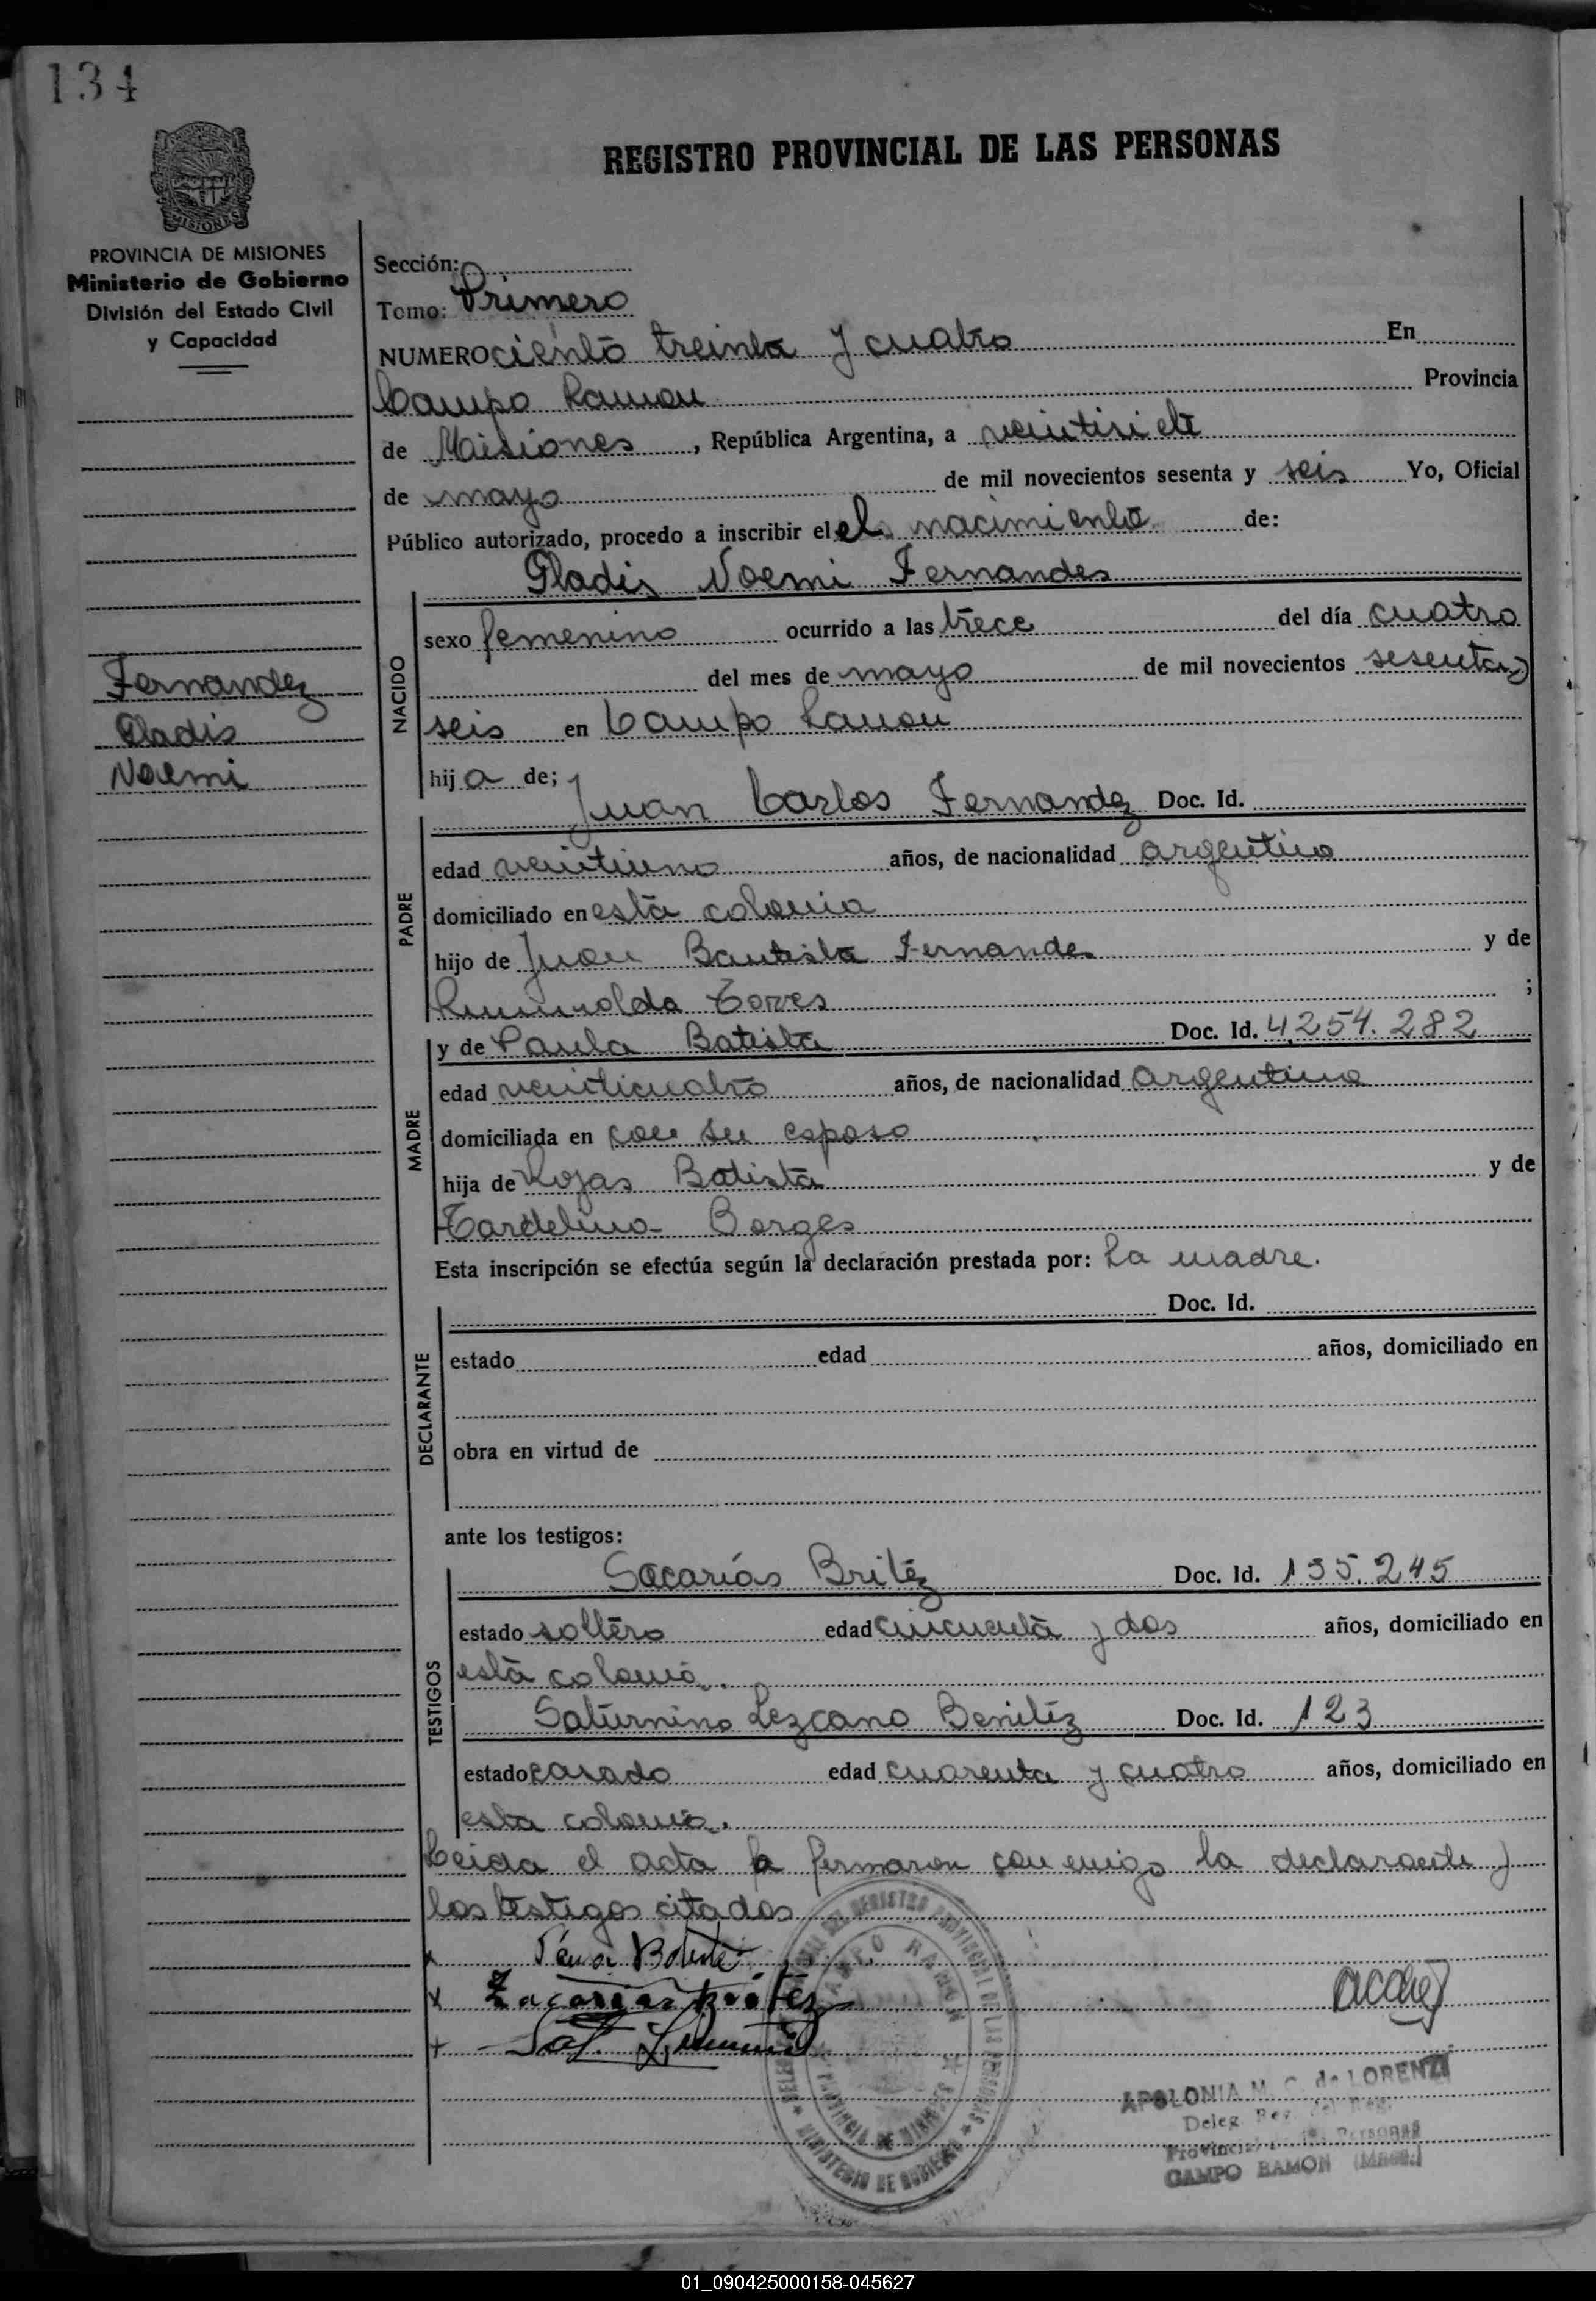 134
REGISTRO PROVINCIAL DE LAS PERSONAS
MISIONES
PROVINCIA DE MISIONES
Ministerio de Gobierno
División del Estado Civil
y Capacidad
Fernandez
Gladis
Noemi
Sección:
Tomo: Primero
NUMERO ciento treinta y cuatro En
Campo Ramon Provincia
de Misiones, República Argentina, a veintisiete
de mayo de mil novecientos sesenta y seis Yo, Oficial
Público autorizado, procedo a inscribir el el nacimiento de:
Gladis Noemi Fernandes
NACIDO
sexo femenino ocurrido a las trece del día cuatro
del mes de mayo de mil novecientos sesenta y
seis en Campo Ramon
hija de;
Juan Carlos Fernandez Doc. Id.
PADRE
edad veintiuno años, de nacionalidad argentino
domiciliado en esta colonia
hijo de Juan Bautista Fernandes y de
Torres ;
MADRE
y de Paula Batista Doc. Id. 4,254.282
edad veinticuatro años, de nacionalidad argentina
domiciliada en con su esposo
hija de Rojas Batista y de
Borges
Esta inscripción se efectúa según la declaración prestada por: La madre.
DECLARANTE
Doc. Id.
estado edad años, domiciliado en
obra en virtud de
ante los testigos:
TESTIGOS
Sacarías Britez Doc. Id. 135.245
estado soltero edad cincuenta y dos años, domiciliado en
esta colonia.
Saturnino Lezcano Benitez Doc. Id. 123
estado casado edad cuarenta y cuatro años, domiciliado en
esta colonia.
Leida el acta la firmaron conmigo la declarante y
los testigos citados
x Batista
x Zacarias Britez
+ Sat.
REGISTRO PROVINCIAL DE LAS PERSONAS
CAMPO RAMON
PROVINCIA DE MISIONES
MINISTERIO DE GOBIERNO
APOLONIA M. C. de LORENZI
Deleg.
Provincial de las Personas
CAMPO RAMON (Mnes.)
01_090425000158-045627